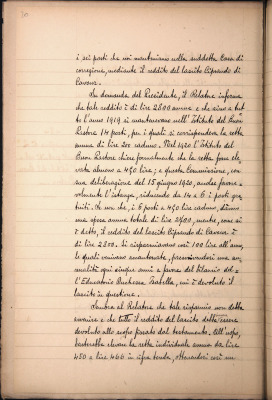 i sei posti che noi manteniamo nella suddetta Casa di
correzione, mediante il reddito del lascito Ciprendo di
Cavour.
Su domanda del Presidente, il Relatore informa
che tale reddito è di lire 2800 annue e che sino a tut-
to l'anno 1919 si mantenevano nell'Istituto del Buon
Pastore 14 posti, per i quali si corrispondeva la retta
annua di lire 200 caduno. Nel 1920 l'Istituto del
Buon Pastore chiese formalmente che la retta fosse ele-
vata almeno a 450 lire; e questa Commissione, con
sua deliberazione del 15 giugno 1920, accolse favore-
volmente l'istanza, riducendo da 14 a 6 i posti gra-
tuiti. Se non che, i 6 posti a 450 lire caduno, danno
una spesa annua totale di lire 2700, mentre, come si
è detto, il reddito del lascito Ciprendo di Cavour è
di lire 2800. Si risparmiavano così 100 lire all'anno,
le quali venivano
ogni cinque anni a favore del bilancio del-
l'Educatorio Duchessa Isabella, cui è devoluto il
lascito in questione.
Sembra al Relatore che tale risparmio non debba
avvenire e che tutto il reddito del lascito debba essere
devoluto allo scopo fissato dal testamento. All'uopo,
basterebbe elevare la retta individuale annua da lire
450 a lire 466 in cifra tonda, ottenendosi così un